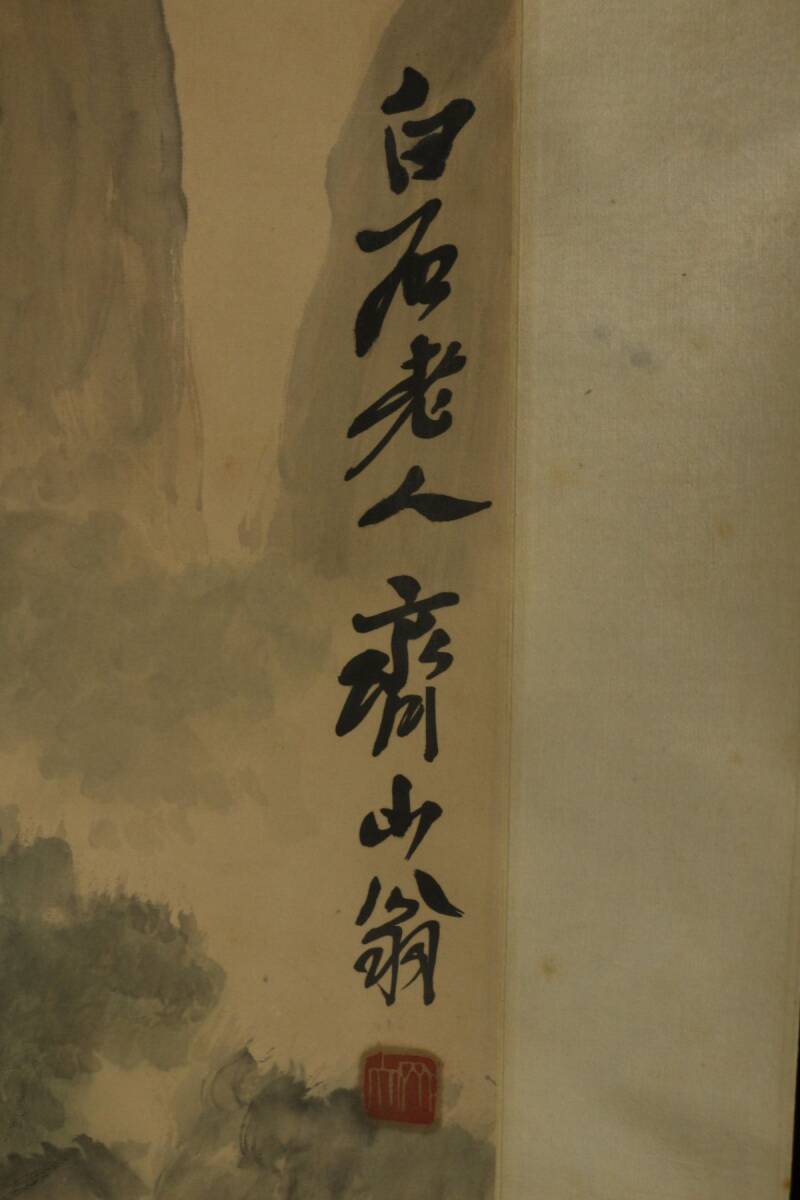 白石老人齊山翁